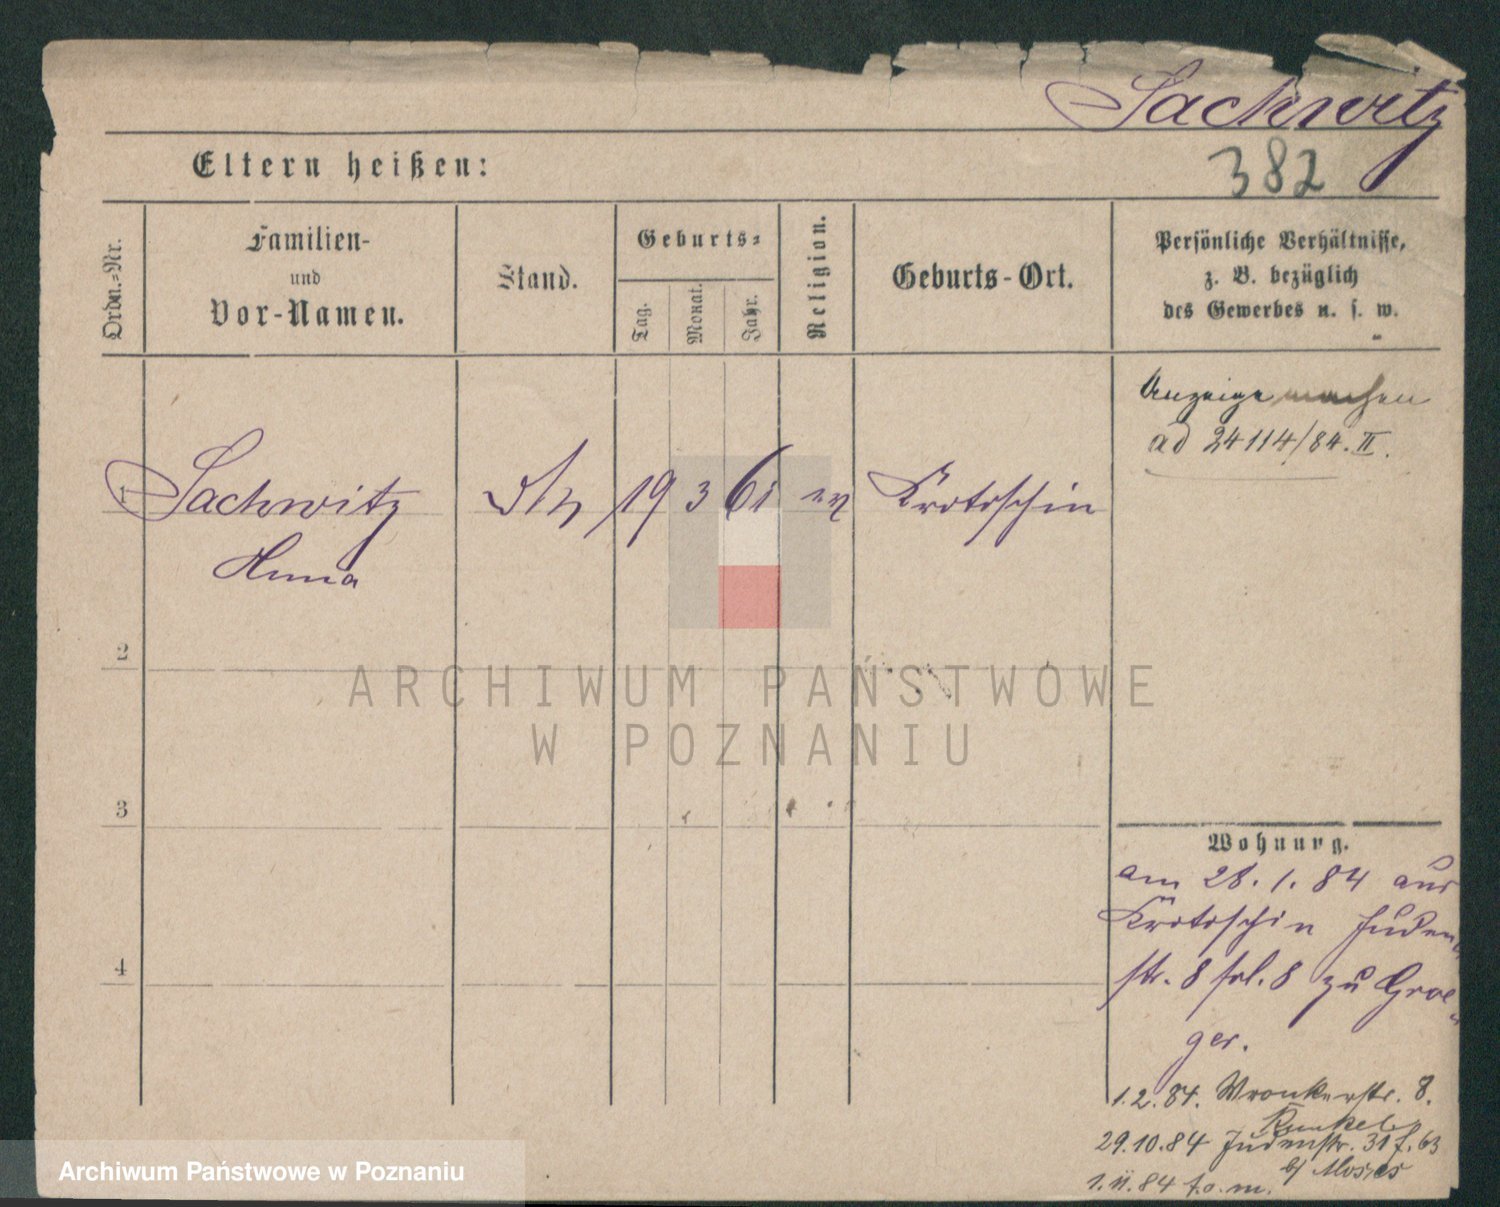 Sachwitz
382
Eltern heißen:
Ordn.-Nr.
Familien-
und
Vor-Namen.
Stand.
Geburts-
Tag.
Monat.
Jahr.
Religion.
Geburts-Ort.
Persönliche Verhältnisse,
z. B. bezüglich
des Gewerbes u. s. w.
Anzeige machen
ad 24114/84. II.
1 Sachwitz 19 3 61 ev Krotoschin
Anna
2
3
4
Wohnung.
am 28. 1. 84 aus
Krotoschin Juden
str. 8 fol. 8 zu Grae-
ger.
1.2.84. Wronkerstr. 8.
Kunkel
29.10.84 Judenstr. 31 f. 63
b/ Moses
1.11.84 f.o.m.
ARCHIWUM PAŃSTWOWE
W POZNANIU
Archiwum Państwowe w Poznaniu